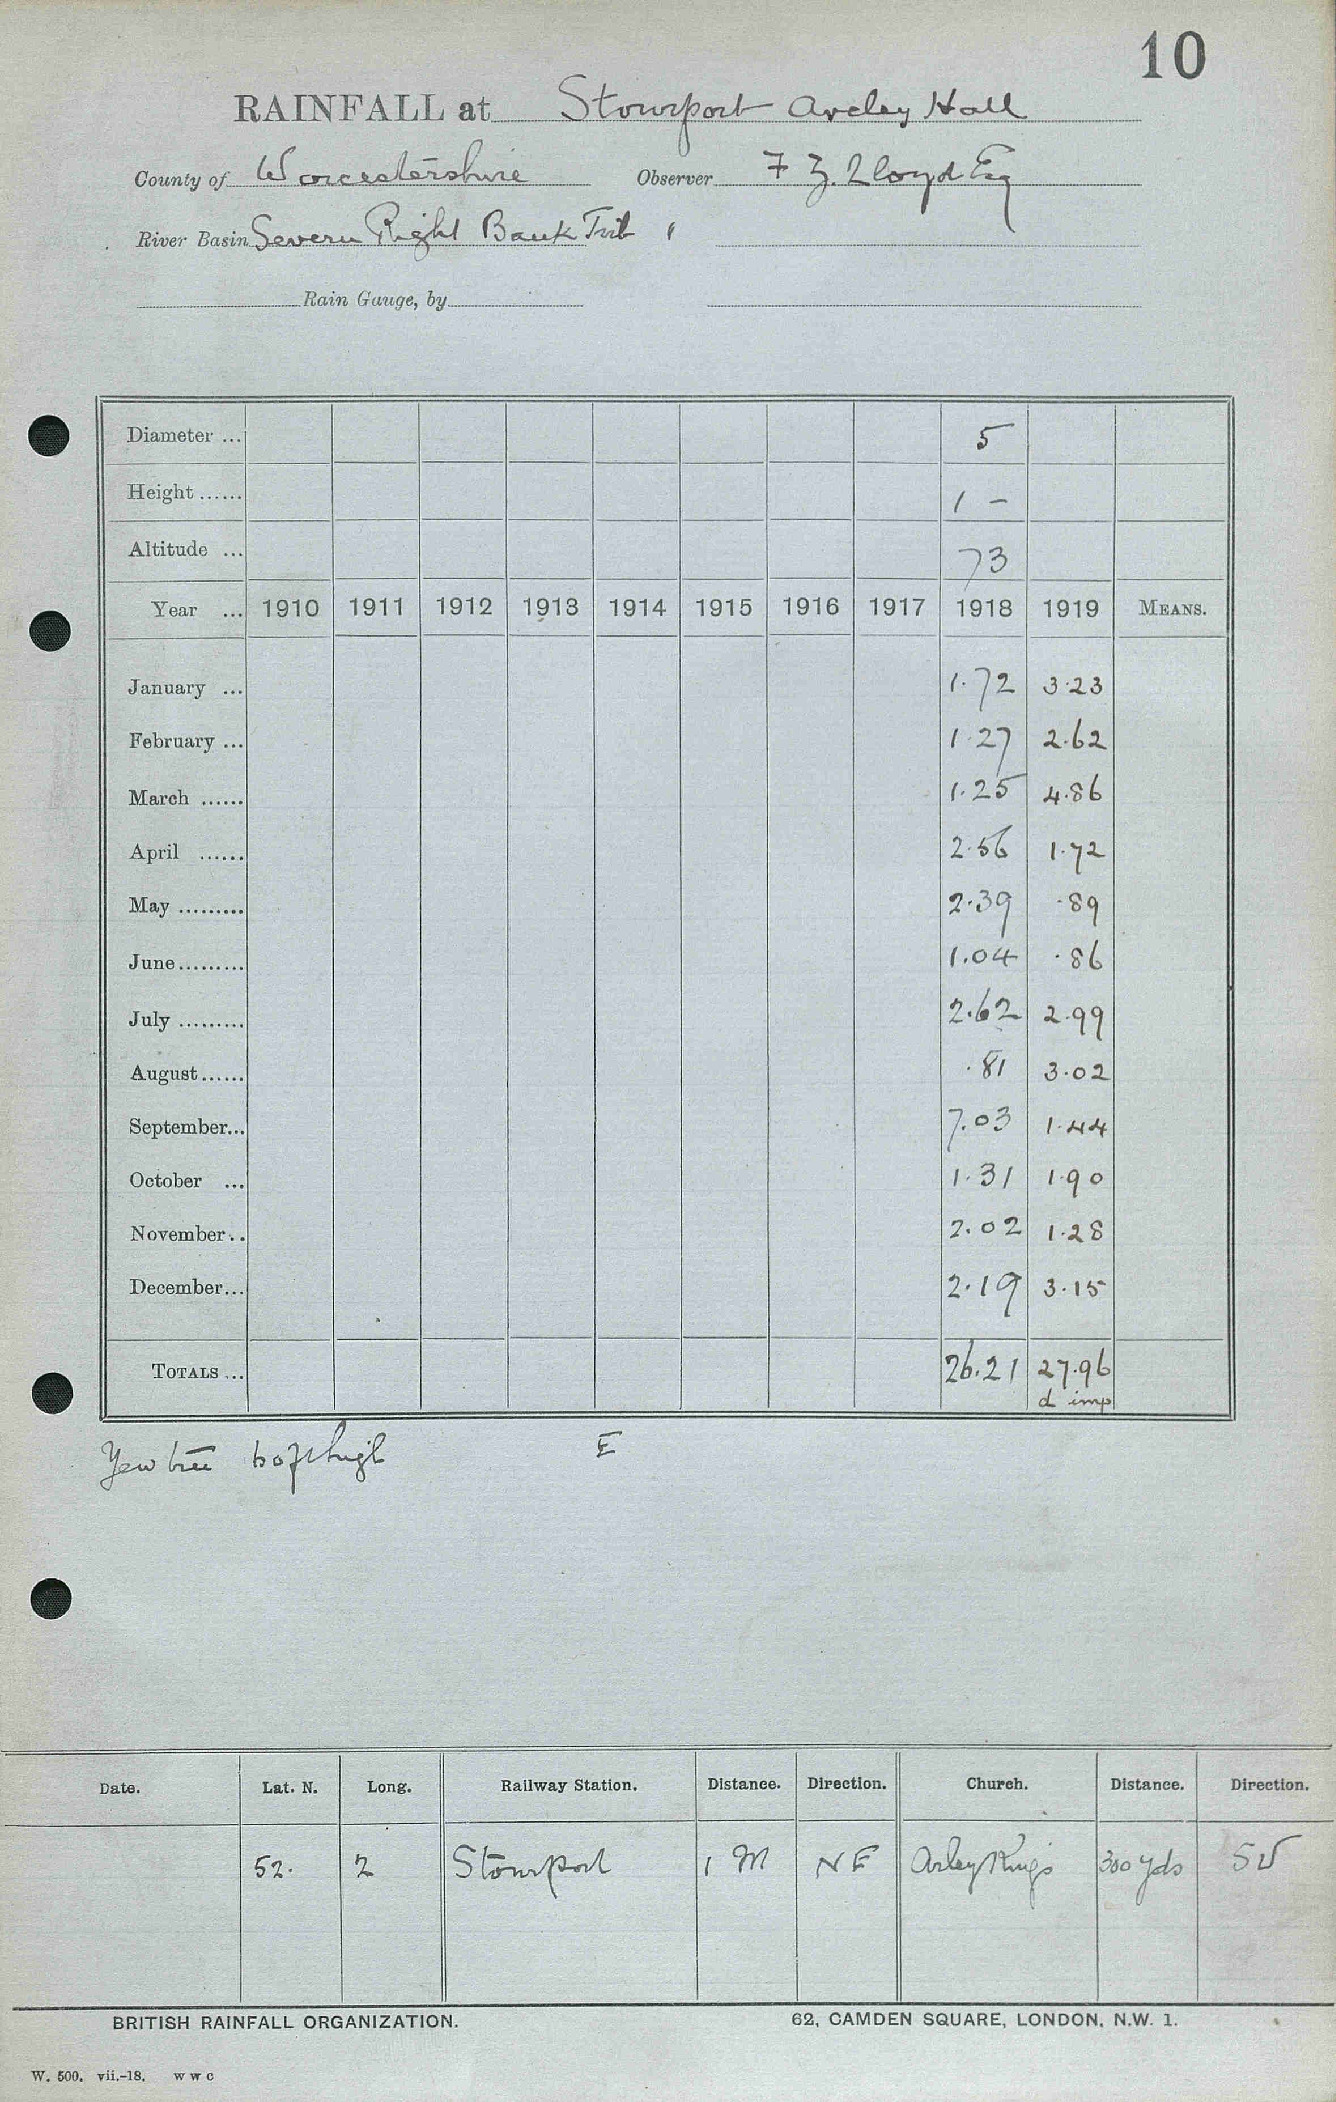 10
RAINFALL at Stourport Areley Hall
County of Worcestershire Observer F Z. Lloyd Esq
River Basin Severn Right Bank Trib "
Rain Gauge, by
Diameter ... 5
Height ...... 1 -
Altitude ... 73
Year ... 1910 1911 1912 1913 1914 1915 1916 1917 1918 1919 MEANS.
January ... 1.72 3.23
February ... 1.27 2.62
March ...... 1.25 4.86
April ...... 2.56 1.72
May ......... 2.39 .89
June......... 1.04 .86
July ......... 2.62 2.99
August...... .81 3.02
September... 7.03 1.44
October ... 1.31 1.90
November.. 2.02 1.28
December... 2.19 3.15
TOTALS ... 26.21 27.96
d imp
Yew tree high E
Date. Lat. N. Long. Railway Station. Distance. Direction. Church. Distance. Direction.
52. 2 Stourport 1 M NE Arley Kings 300 yds SW
BRITISH RAINFALL ORGANIZATION. 62, CAMDEN SQUARE, LONDON, N.W. 1.
W. 500. vii.-18. w w c